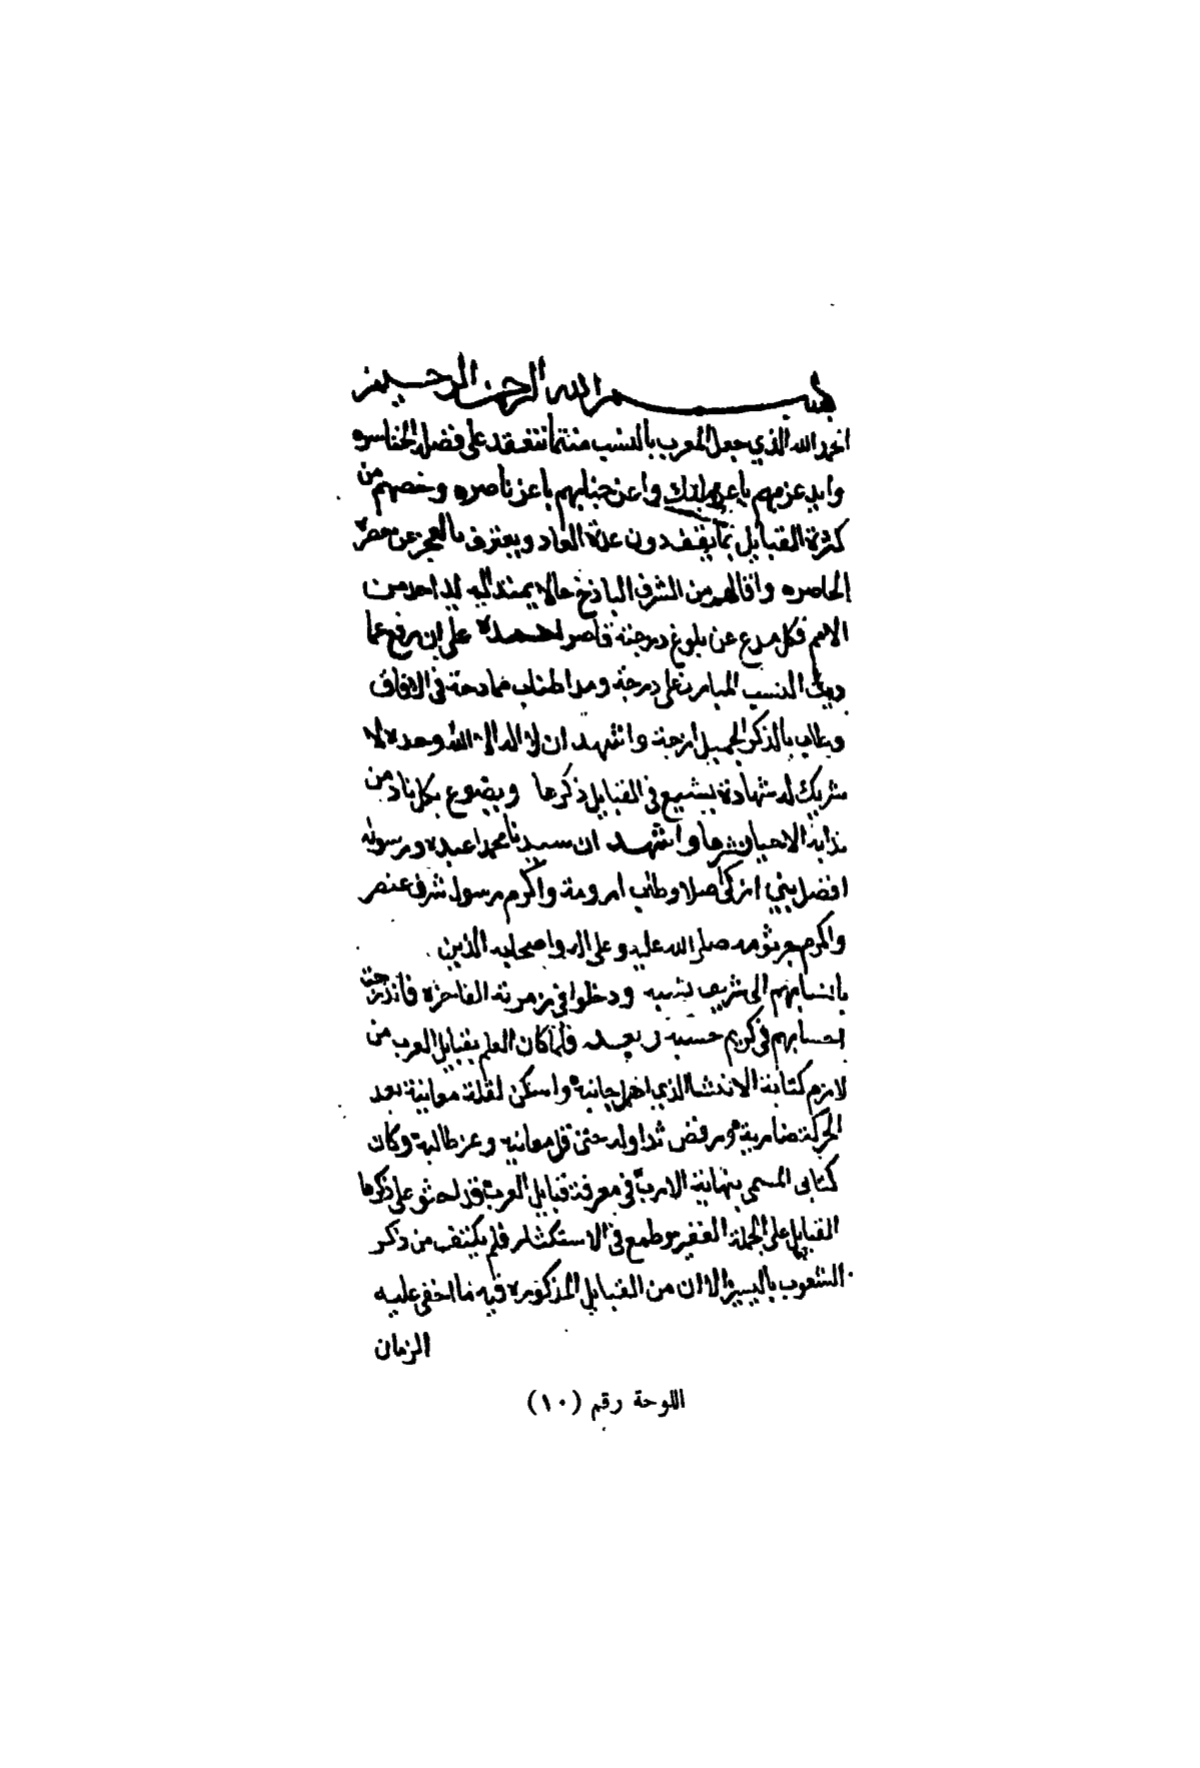 بسم الله الرحمن الرحيم
الحمد لله الذي جعل للعرب بالنسب منتما تنعقد على فضله الخناصره
وايد عزمهم باعز واعز جنابهم باعز ناصره وخصهم من
كثرة القبايل بما يفقدون عدة العاد ويعترف بالعجز عن حصره
الحاصره وانالهم من الشرف الباذخ حالا يمتد اليه يد احد من
الامم فكل مدع عن بلوغ درجته قاصر احمده على ان رفع عما
النسب المبارك على درجة ومد اطناب ممادحة في الافاق
بالذكر الجميل ارجة واشهد ان لا اله الا الله وحده لا
شريك له شهادة يشيع في القبايل ذكرها ويضوع بكل ناد من
الاحيان نشرها واشهد ان سيدنا محمدا عبده ورسوله
افضل نبي ازكى اصلا وطاب ارومة واكرم رسول شرف عنصر
واكرم جرثومه صلى الله عليه وعلى اله واصحابه الذين
بانتسابهم الى شريف نسبه ودخلوا في زمرته الفاخره
احسابهم في كريم حسبه وبعد فلما كان العلم بقبايل العرب من
لازم كتابة الانشا الذي اهمل جانبه واستكن لقلة معانية بعد
الحركة ضاربه ورفض تداوله حتى قل معانيه وعز طالبه وكان
كتابى المسمى بنهاية الارب في معرفة قبايل العرب قد احتوى على ذكرها
القبايل على الجملة الغفير وطمع في الاستكثار فلم يكتف من ذكر
الشعوب باليسير الا ان من القبايل المذكوره فيه ما اخفى عليه
الزمان
اللوحة رقم (١٠)